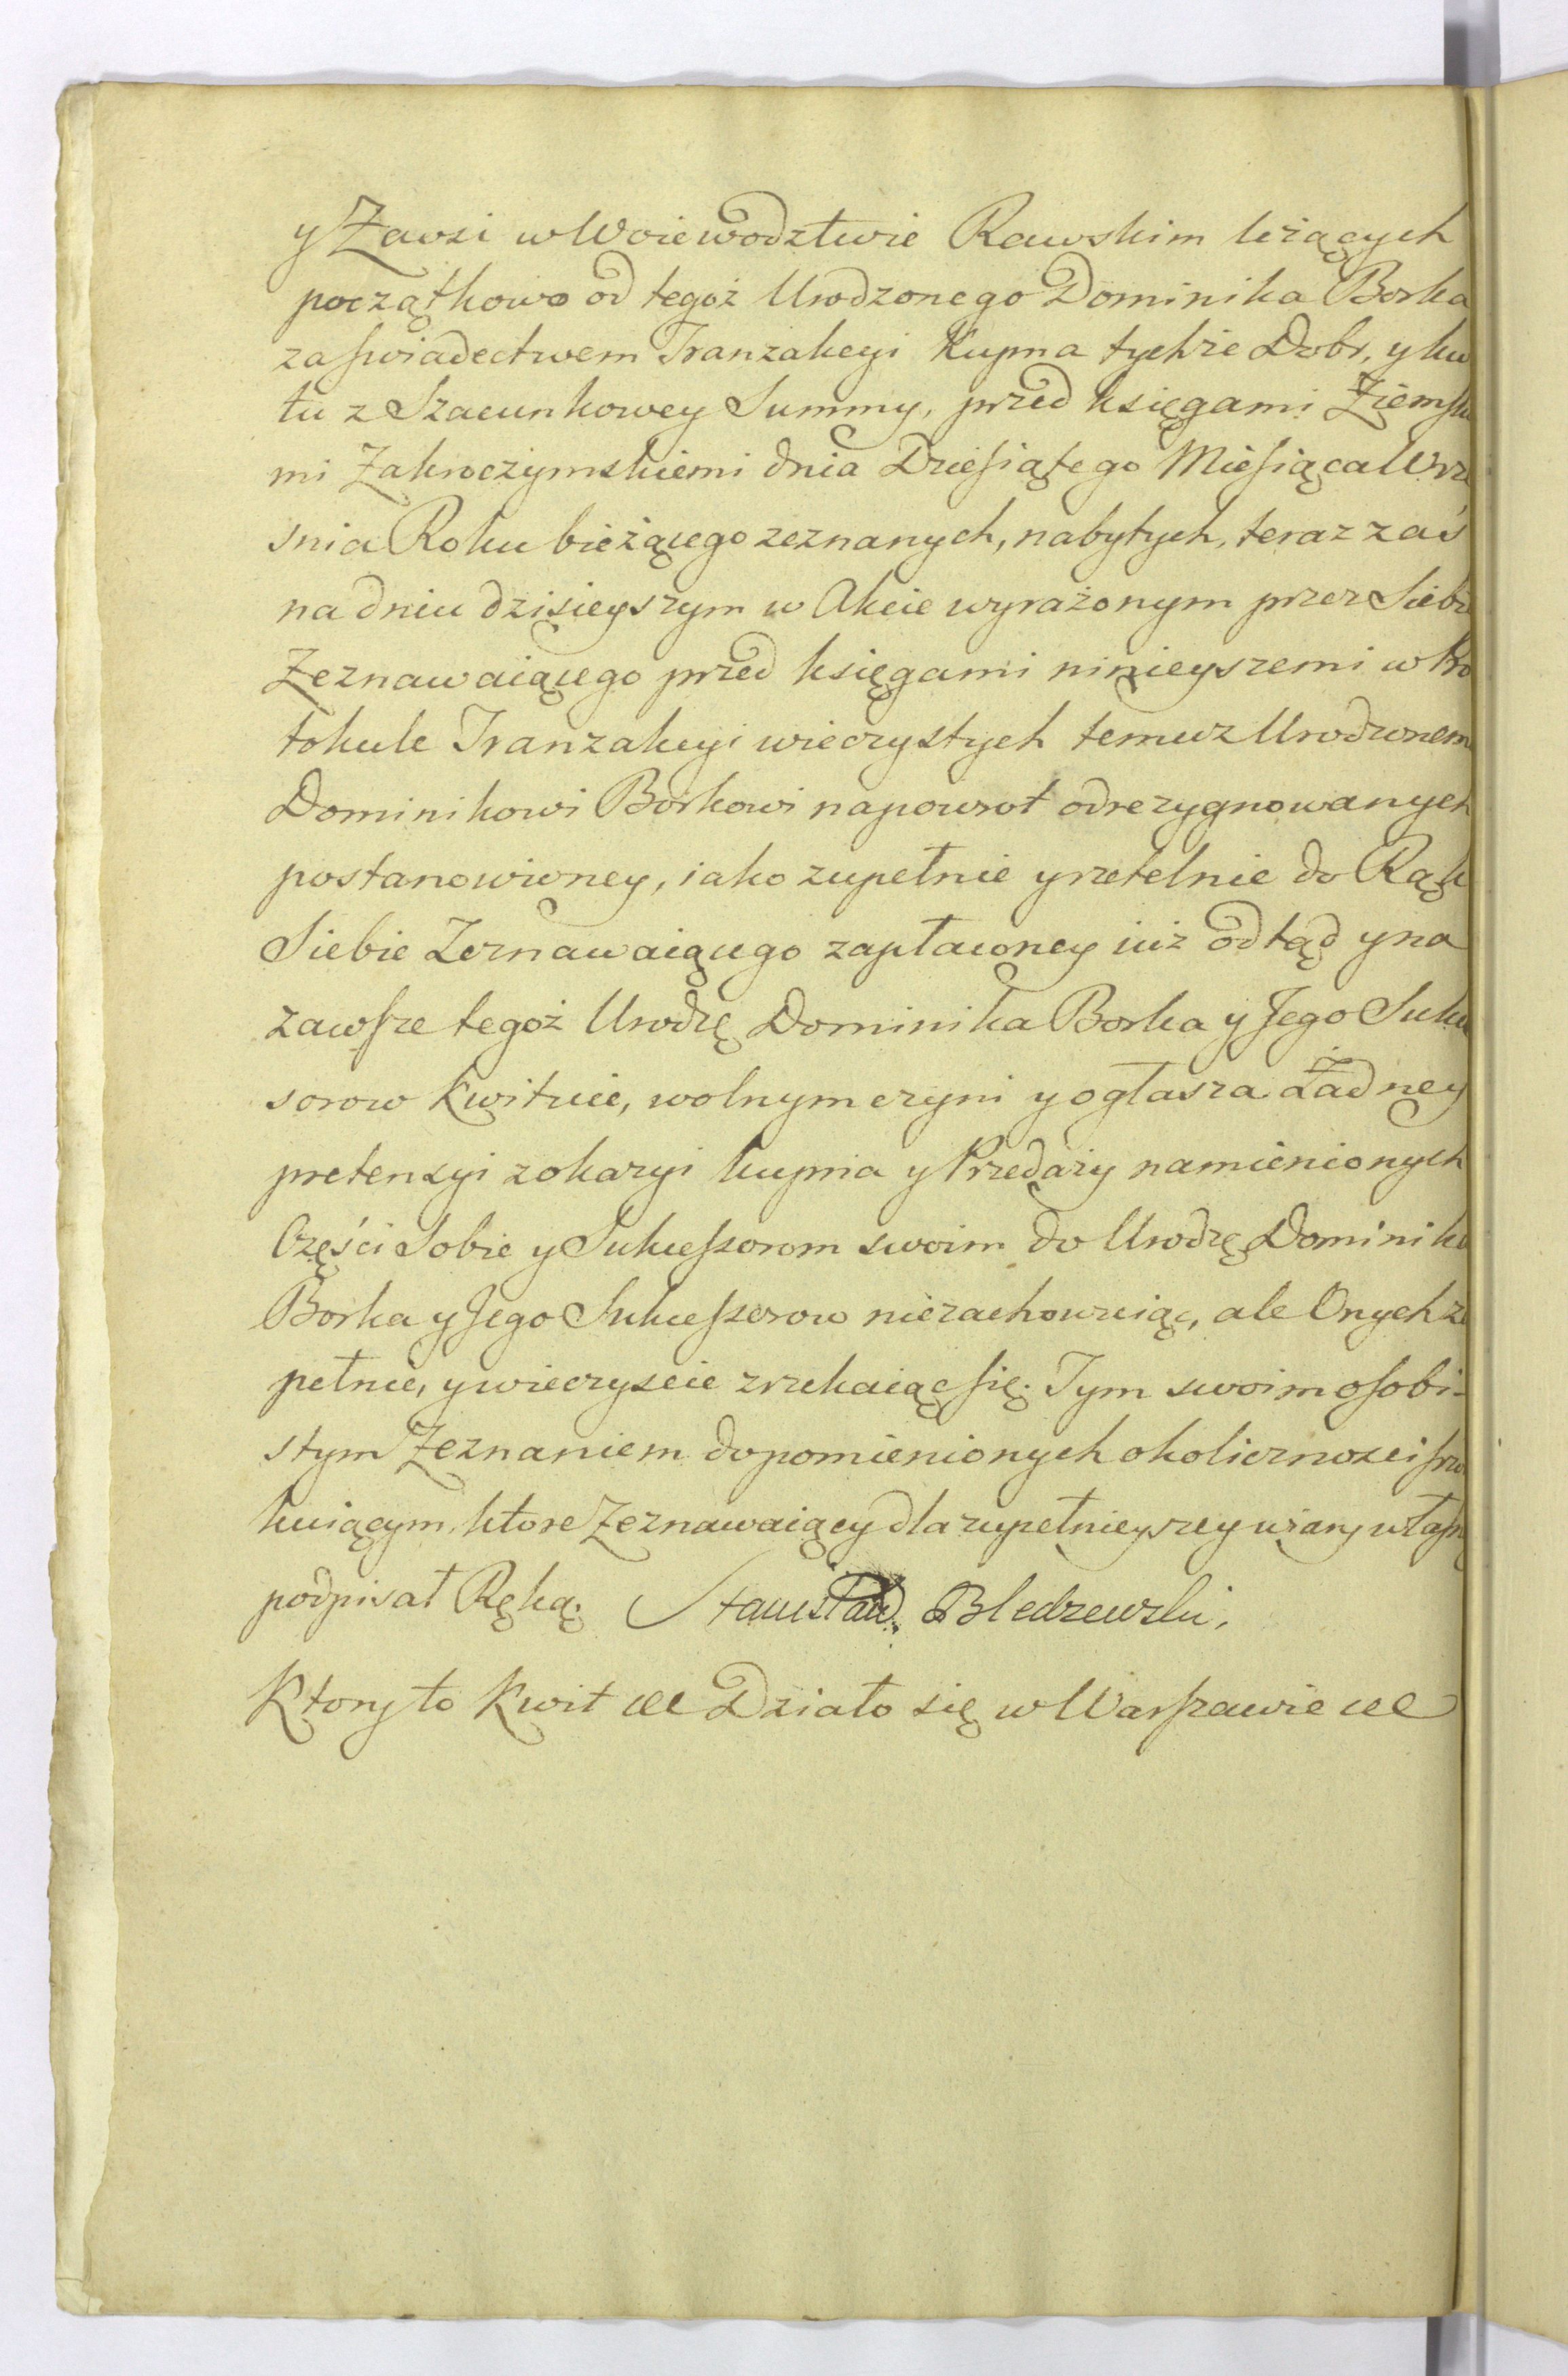 y Zawsi w Woiewodztwie Rawskim leżących
początkowo od tegoż Urodzonego Dominika Borka
za swiadectwem Tranzakcyi Kupna tychże Dobr, y kwi
tu z Szacunkowey Summy, przed księgami Ziemski
mi Zakroczymskiemi dnia Dziesiątego Miesiąca Wrze
snia Roku bieżącego zeznanych, nabytych, teraz zaś
na dniu dzisieyszym w Akcie wyrażonym przez Siebie
Zeznawaiącego przed księgami ninieyszemi w Pro
tokule Tranzakcyi wieczystych temuz Urodzonem
Dominikowi Borkowi napowrot odrezygnowanych
postanowioney, iako zupełnie y rzetelnie do Rąk
Siebie Zeznawaiącego zapłaconey iuż odtąd y na
zawsze tegoż Urodzę Dominika Borka y Jego Sukce
sorow Kwituie, wolnym czyni y ogłasza Żadney
pretensyi z okazyi kupna y Przedaży namienionych
Części Sobie y Sukcessorom swoim do Urodzę Dominika
Borka y Jego Sukcessorow niezachowuiąc, ale Onych zu
pełnie, y wieczyscie zrzekaiąc się. Tym swoim osobi-
stym Zeznaniem do pomienionych okolicznosci
kuiącym, ktore Zeznawaiący dla zupełnieyszey wiary własną
podpisał Ręką. Stanisław Bledzewski.
Ktory to Kwit etc Działo się w Warszawie etc